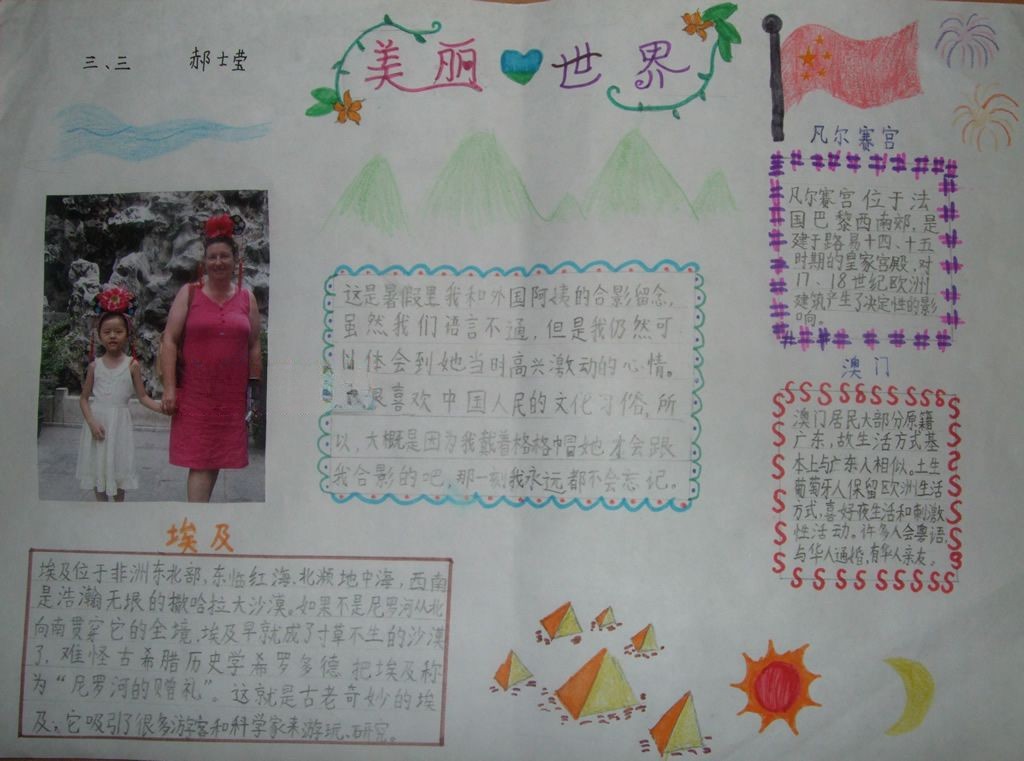 三、三 郝士莹
美丽世界
这是暑假里我和外国阿姨的合影留念,
虽然我们语言不通,但是我仍然可
以体会到她当时高兴激动的心情。
很喜欢中国人民的文化习俗,所
以,大概是因为我戴着格格帽她才会跟
我合影的吧,那一刻我永远都不会忘记。
凡尔赛宫
凡尔赛宫位于法
国巴黎西南郊,是
建于路易十四、十五
时期的皇家宫殿,对
17、18世纪欧洲
建筑产生了决定性的影
响。
澳门
澳门居民大部分原籍
广东,故生活方式基
本上与广东人相似。土生
葡萄牙人保留欧洲生活
方式,喜好夜生活和刺激
性活动。许多人会粤语,
与华人通婚,有华人亲友。
埃及
埃及位于非洲东北部,东临红海,北濒地中海,西南
是浩瀚无垠的撒哈拉大沙漠。如果不是尼罗河从北
向南贯穿它的全境,埃及早就成了寸草不生的沙漠
了,难怪古希腊历史学希罗多德把埃及称
为“尼罗河的赠礼”。这就是古老奇妙的埃
及,它吸引了很多游客和科学家来游玩、研究。